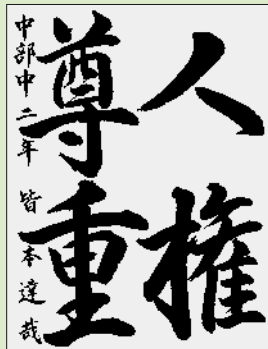 人権
尊重
中部中二年 皆本達哉